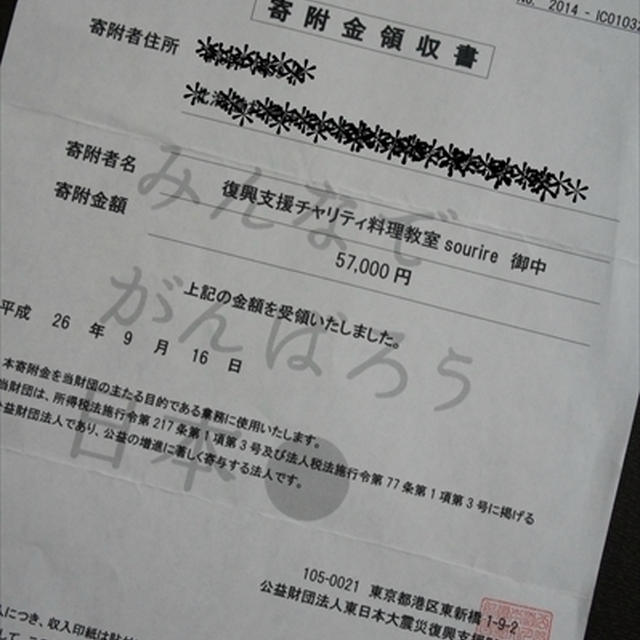 No. 2014 - IC0103
寄附金領収書
寄附者住所
寄附者名 復興支援チャリティ料理教室 sourire 御中
寄附金額 57,000 円
上記の金額を受領いたしました。
平成 26 年 9 月 16 日
みんなで
がんばろう
日本
本寄附金を当財団の主たる目的である業務に使用いたします。
当財団は、所得税法施行令第217条第1項第3号及び法人税法施行令第77条第1項第3号に掲げる
公益財団法人であり、公益の増進に著しく寄与する法人です。
105-0021 東京都港区東新橋 1-9-2
公益財団法人東日本大震災復興支援
につき、収入印紙は貼